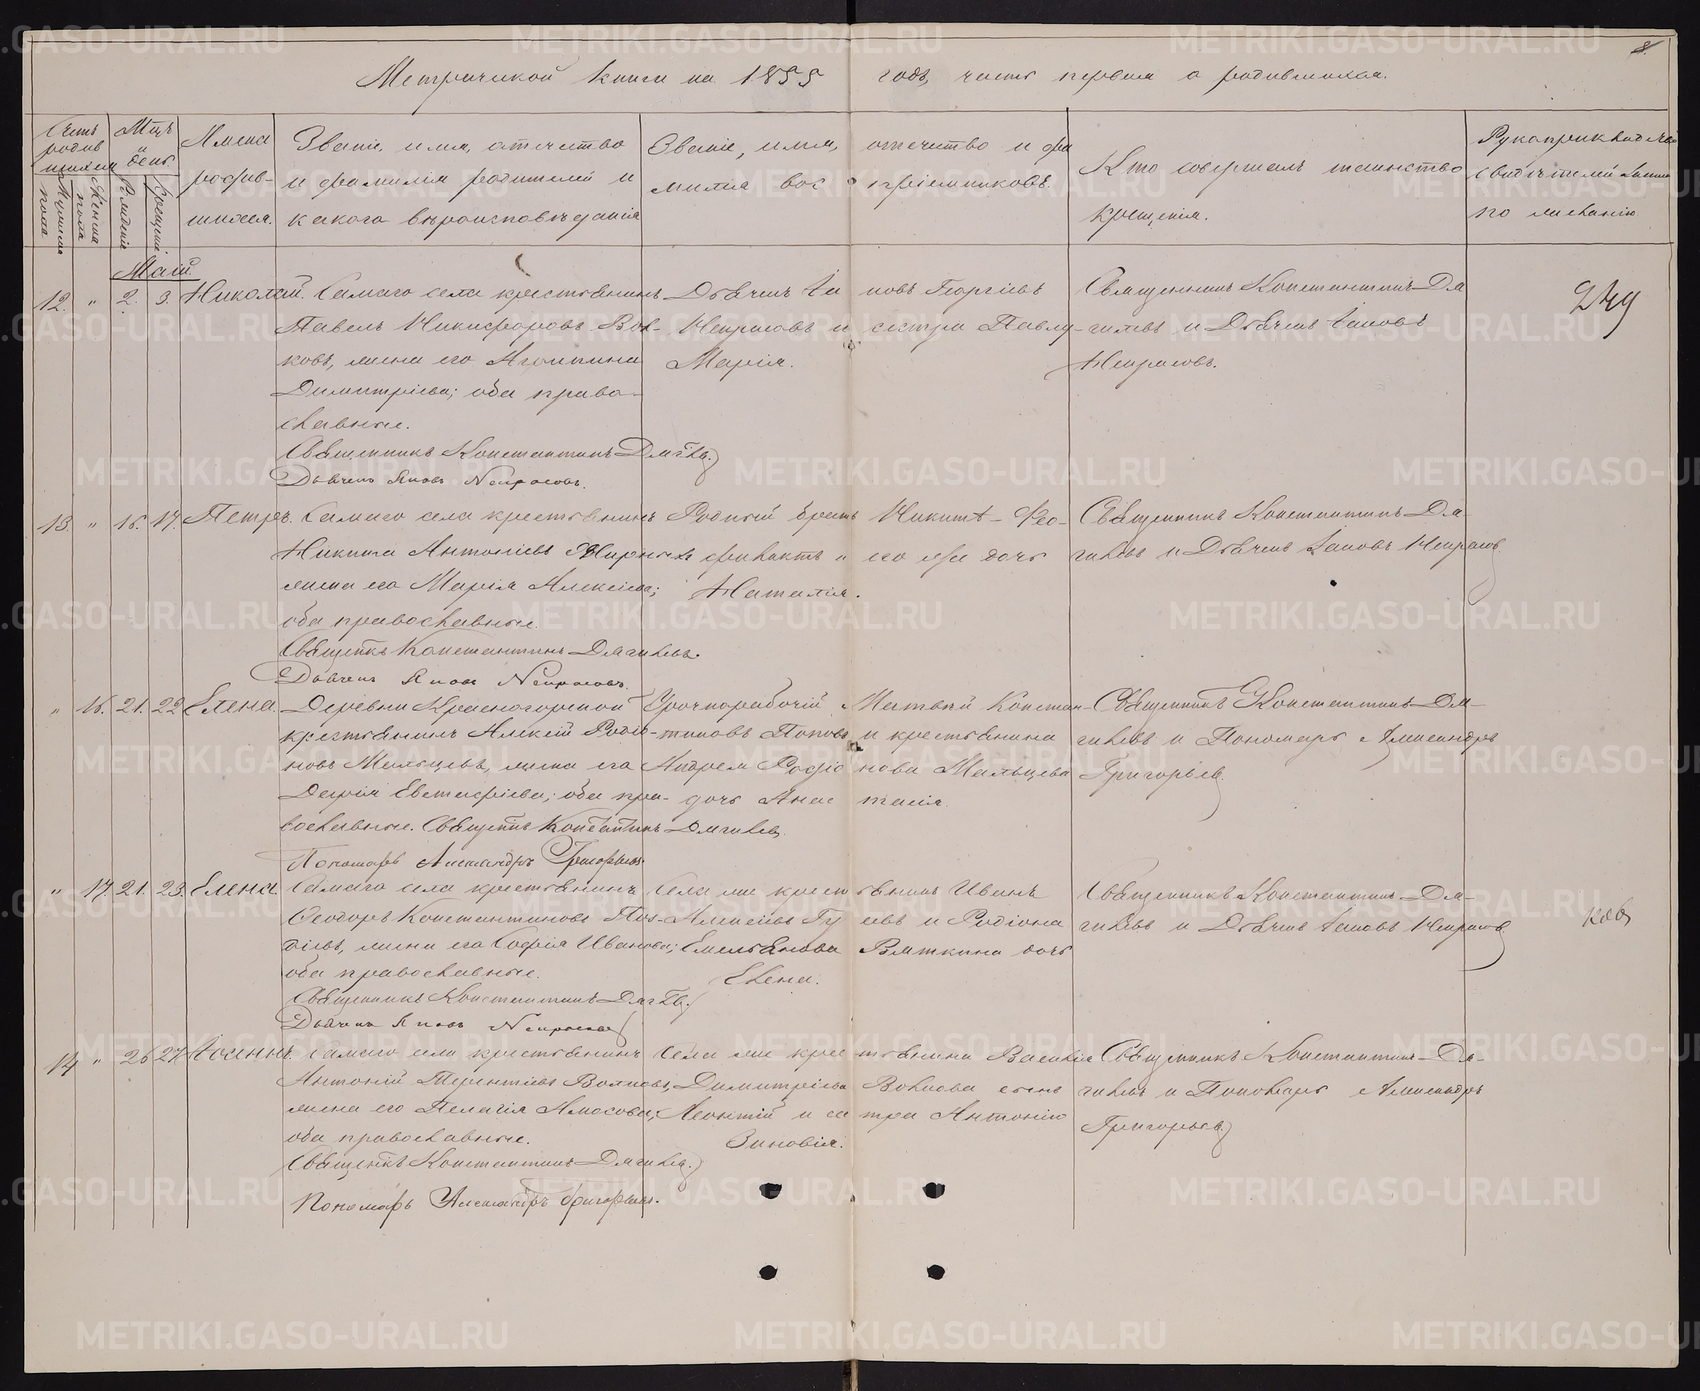 8.
Метрической книги на 1855 годъ, часть первая о родившихся.
Счетъ родившихся
Мужеска пола
Женска пола
Мѣц. и день
Рожденіе
Крещеніе
Имена родившихся.
Званіе, имя, отчество и фамилія родителей и какого вѣроисповѣданія
Званіе, имя, отчество и фамилія воспріемниковъ.
Кто совершалъ таинство крещенія.
Рукоприкладство свидѣтелей записи по желанію
Май.
12. " 2. 3. Николай.
Самаго села крестьянинъ
Павелъ Никифоровъ Вол-
ковъ, жена его Агрипина
Димитріева; оба право-
славные.
Священникъ Константинъ Дягилев.
Дьячекъ Яковъ Некрасовъ.
Дьячекъ Іаковъ Георгіевъ
Некрасовъ и сестра Павлу
Марія.
Священникъ Константинъ Дя-
гилевъ и Дьячекъ Іаковъ
Некрасовъ.
249
13 " 16. 17. Петръ.
Самаго села крестьянинъ
Никита Антоніевъ
жена его Марія Алексіева;
оба православные.
Священникъ Константинъ Дягилевъ.
Дьячекъ Яковъ Некрасовъ.
Родной братъ Никитѣ Фео-
филактъ и его же дочь
Наталія.
Священникъ Константинъ Дя-
гилевъ и Дьячекъ Іаковъ Некрасов
" 16. 21. 22 Елена.
Деревни Красногорской
крестьянинъ Алексій Родіо-
новъ Мальцевъ, жена его
Дарія Евстафіева; оба пра-
вославные. Священникъ Константинъ Дягилев.
Пономарь Александръ Григорьев.
Урочнорабочій Матвѣй Констан-
тиновъ Поповъ и крестьянина
Андрея Родіонова Мальцева
дочь Анастасія.
Священникъ Константинъ Дя-
гилевъ и Пономарь Александръ
Григорьев
" 17. 21. 23. Елена.
Самаго села крестьянинъ
Ѳеодоръ Константиновъ Поз-
, жена его Софія Иванова;
оба православные.
Священникъ Константинъ Дягилев.
Дьячекъ Яковъ Некрасовъ
Села же крестьянинъ Иванъ
Алексіевъ Гусевъ и Родіона
Емельянова Вяткина дочь
Елена.
Священникъ Константинъ Дя-
гилевъ и Дьячекъ Іаковъ Некрасов
14 " 26 27 Іоаннъ.
Самаго села крестьянинъ
Антоній Терентіевъ Волковъ,
жена его Пелагія Амосова;
оба православные.
Священникъ Константинъ Дягилев.
Пономарь Александръ Григорьев.
Села же крестьянина Василія
Димитріева Волкова сынъ
Леонтій и сестра Антонію
Зиновія.
Священникъ Константинъ Дя-
гилевъ и Пономарь Александръ
Григорьев
METRIKI.GASO-URAL.RU